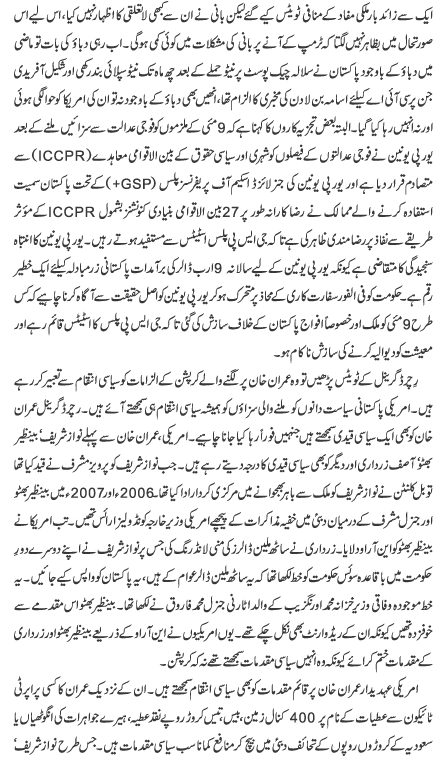 ایک سے زائد بار ملکی مفاد کے منافی ٹویٹس کیے گئے لیکن بانی نے ان سے کبھی لاتعلقی کا اظہار نہیں کیا، اس لیے اس
صورتحال میں بظاہر نہیں لگتا کہ ٹرمپ کے آنے پر بانی کی مشکلات میں کوئی کمی ہوگی۔ اب رہی دباؤ کی بات تو ماضی
میں دباؤ کے باوجود پاکستان نے سلالہ چیک پوسٹ پر نیٹو حملے کے بعد چھ ماہ تک نیٹو سپلائی بند رکھی اور شکیل آفریدی
جن پر سی آئی اے کیلئے اسامہ بن لادن کی مخبری کا الزام تھا، انھیں بھی دباؤ کے باوجود نہ تو ان کی امریکا کو حوالگی ہوئی
اور نہ انھیں رہا کیا گیا۔ البتہ بعض تجزیہ کاروں کا کہنا ہے کہ 9 مئی کے ملزموں کو فوجی عدالت سے سزائیں ملنے کے بعد
یورپی یونین نے فوجی عدالتوں کے فیصلوں کو شہری اور سیاسی حقوق کے بین الاقوامی معاہدے (ICCPR) سے
متصادم قرار دیا ہے اور یورپی یونین کی جنرلائزڈ اسکیم آف پریفرنسز پلس (GSP+) کے تحت پاکستان سمیت
استفادہ کرنے والے ممالک نے رضاکارانہ طور پر 27 بین الاقوامی بنیادی کنونشنز بشمول ICCPR کے مؤثر
طریقے سے نفاذ پر رضامندی ظاہر کی ہے تاکہ جی ایس پی پلس اسٹیٹس سے مستفید ہوتے رہیں۔ یورپی یونین کا انتباہ
سنجیدگی کا متقاضی ہے کیونکہ یورپی یونین کے لیے سالانہ 9 ارب ڈالر کی برآمدات پاکستانی زرمبادلہ کیلئے ایک خطیر
رقم ہے۔ حکومت کو فی الفور سفارت کاری کے محاذ پر متحرک ہو کر یورپی یونین کو اصل حقیقت سے آگاہ کرنا چاہیے کہ کس
طرح 9 مئی کو ملک اور خصوصاً افواج پاکستان کے خلاف سازش کی گئی تاکہ جی ایس پی پلس کا اسٹیٹس قائم رہے اور
معیشت کو دیوالیہ کرنے کی سازش ناکام ہو۔
رچرڈ گرینل کے ٹویٹس پڑھیں تو وہ عمران خان پر لگنے والے کرپشن کے الزامات کو سیاسی انتقام سے تعبیر کر رہے
ہیں۔ امریکی پاکستانی سیاست دانوں کو ملنے والی سزاؤں کو ہمیشہ سیاسی انتقام ہی سمجھتے آئے ہیں۔ رچرڈ گرینل عمران
خان کو بھی ایک سیاسی قیدی سمجھتے ہیں جنہیں فوراً رہا کیا جانا چاہیے۔ امریکی، عمران خان سے پہلے نواز شریف، بینظیر
بھٹو، آصف زرداری اور دیگر کو بھی سیاسی قیدی کا درجہ دیتے رہے ہیں۔ جب نواز شریف کو پرویز مشرف نے قید کیا تھا
تو بل کلنٹن نے نواز شریف کو ملک سے باہر بھجوانے میں مرکزی کردار ادا کیا تھا۔ 2006ء اور 2007ء میں بینظیر بھٹو
اور جنرل مشرف کے درمیان دبئی میں خفیہ مذاکرات کے پیچھے امریکی وزیر خارجہ کونڈولیزا رائس تھیں۔ تب امریکا نے
بینظیر بھٹو کو این آر او دلایا۔ زرداری نے ساٹھ ملین ڈالرز کی منی لانڈرنگ کی جس پر نواز شریف نے اپنے دوسرے دور
حکومت میں باقاعدہ سوئس حکومت کو خط لکھا تھا کہ یہ ساٹھ ملین ڈالر عوام کے ہیں، یہ پاکستان کو واپس کیے جائیں۔ یہ
خط موجودہ وفاقی وزیر خزانہ محمد اورنگزیب کے والد اٹارنی جنرل محمد فاروق نے لکھا تھا۔ بینظیر بھٹو اس مقدمے سے
خوفزدہ تھیں کیونکہ ان کے ریڈ وارنٹ بھی نکل چکے تھے۔ یوں امریکیوں نے این آر او کے ذریعے بینظیر بھٹو اور زرداری
کے مقدمات ختم کرائے کیونکہ وہ انہیں سیاسی مقدمات سمجھتے تھے نہ کہ کرپشن۔
امریکی عہدیدار عمران خان پر قائم مقدمات کو بھی سیاسی انتقام سمجھتے ہیں۔ ان کے نزدیک عمران کا کسی پراپرٹی
ٹائیکون سے عطیات کے نام پر 400 کنال زمین، بیس، تیس کروڑ روپے نقد عطیہ، ہیرے جواہرات کی انگوٹھیاں یا
سعودیہ کے کروڑوں روپوں کے تحائف دبئی میں بیچ کر منافع کمانا سب سیاسی مقدمات ہیں۔ جس طرح نواز شریف،